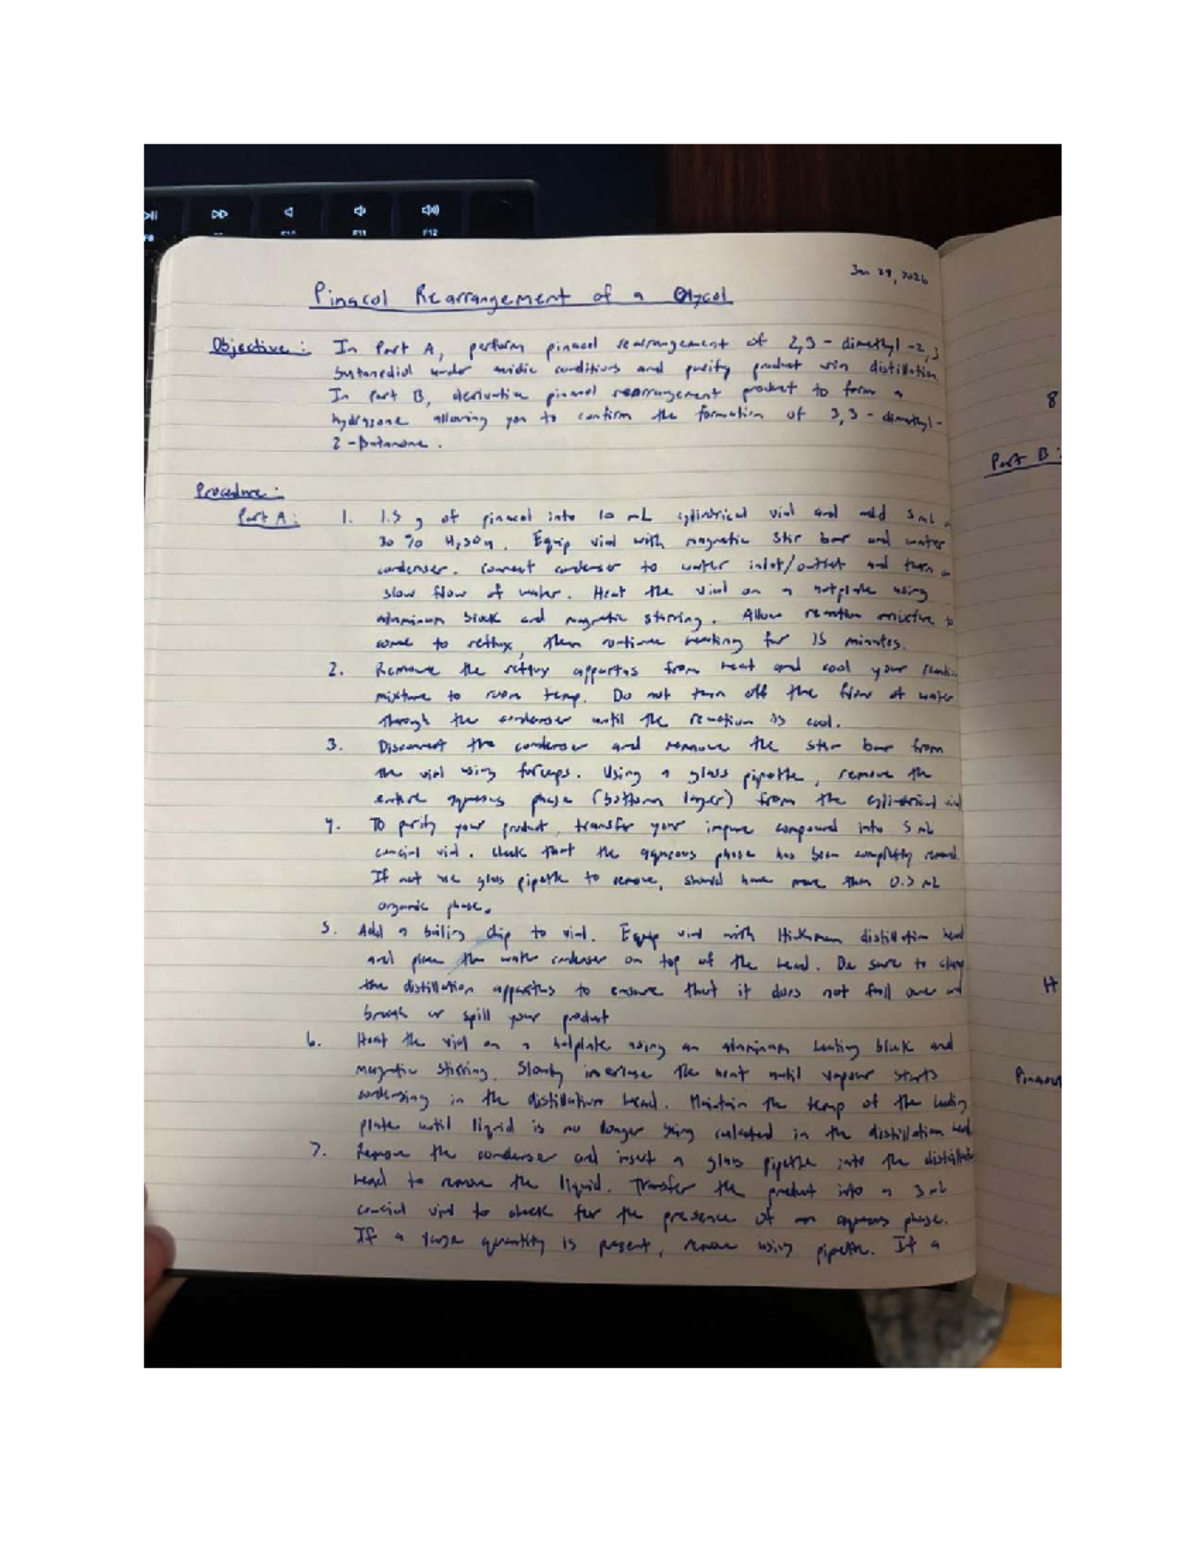 F10
F11
F12
Jan 29, 2026
Pinacol Rearrangement of a Glycol
Objective: In Part A, perform pinacol rearrangement of 2,3-dimethyl-2,3
butanediol under acidic conditions and purify product via distillation.
In Part B, derivatize pinacol rearrangement product to form a
hydrazone allowing you to confirm the formation of 3,3-dimethyl-
2-butanone.
8
Part B:
Procedure:
Part A: 1. 1.5 g of pinacol into 10 mL cylindrical vial and add 5 mL
30% H2SO4. Equip vial with magnetic stir bar and water
condenser. Connect condenser to water inlet/outlet and turn on
slow flow of water. Heat the vial on a hotplate using
aluminum block and magnetic stirring. Allow reaction mixture to
come to reflux, then continue heating for 15 minutes.
2. Remove the reflux appartus from heat and cool your reaction
mixture to room temp. Do not turn off the flow of water
through the condenser until the reaction is cool.
3. Disconnect the condenser and remove the stir bar from
the vial using forceps. Using a glass pipette, remove the
entire aqueous phase (bottom layer) from the cylindrical vial
4. To purify your product, transfer your impure compound into 5 mL
conical vial. Check that the aqueous phase has been completely removed.
If not use glass pipette to remove, should have more than 0.5 mL
organic phase.
5. Add a boiling chip to vial. Equip vial with Hickman distillation head
and place the water condenser on top of the head. Be sure to clamp
the distillation appartus to ensure that it does not fall over and
break or spill your product
6. Heat the vial on a hotplate using an aluminum heating block and
magnetic stirring. Slowly increase the heat until vapour starts
condensing in the distillation head. Maintain the temp of the heating
plate until liquid is no longer being collected in the distillation head
7. Remove the condenser and insert a glass pipette into the distillation
head to remove the liquid. Transfer the product into a 3 mL
conical vial to check for the presence of an aqueous phase.
If a large quantity is present, remove using pipette. If a
H